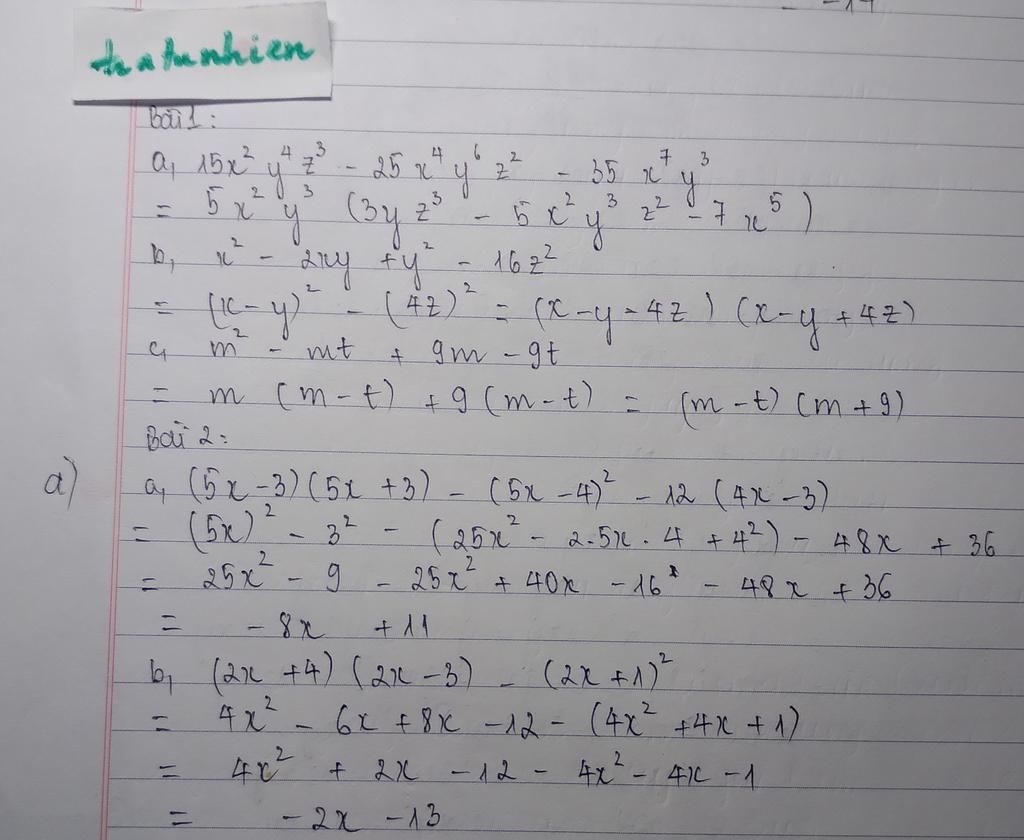 -17
tratunhien
Bài 1:
a, 15x² y⁴ z³ - 25 x⁴ y⁶ z² - 35 x⁷ y³
= 5 x² y³ (3y z³ - 5 x² y³ z² - 7 x⁵)
b, x² - 2xy + y² - 16z²
= (x-y)² - (4z)² = (x-y-4z) (x-y+4z)
c, m² - mt + 9m - 9t
= m (m-t) + 9 (m-t) = (m-t) (m+9)
Bài 2:
a) a, (5x-3)(5x+3) - (5x-4)² - 12 (4x-3)
= (5x)² - 3² - (25x² - 2.5x.4 + 4²) - 48x + 36
= 25x² - 9 - 25x² + 40x - 16 - 48x + 36
= -8x + 11
b, (2x+4) (2x-3) - (2x+1)²
= 4x² - 6x + 8x - 12 - (4x² + 4x + 1)
= 4x² + 2x - 12 - 4x² - 4x - 1
= -2x - 13